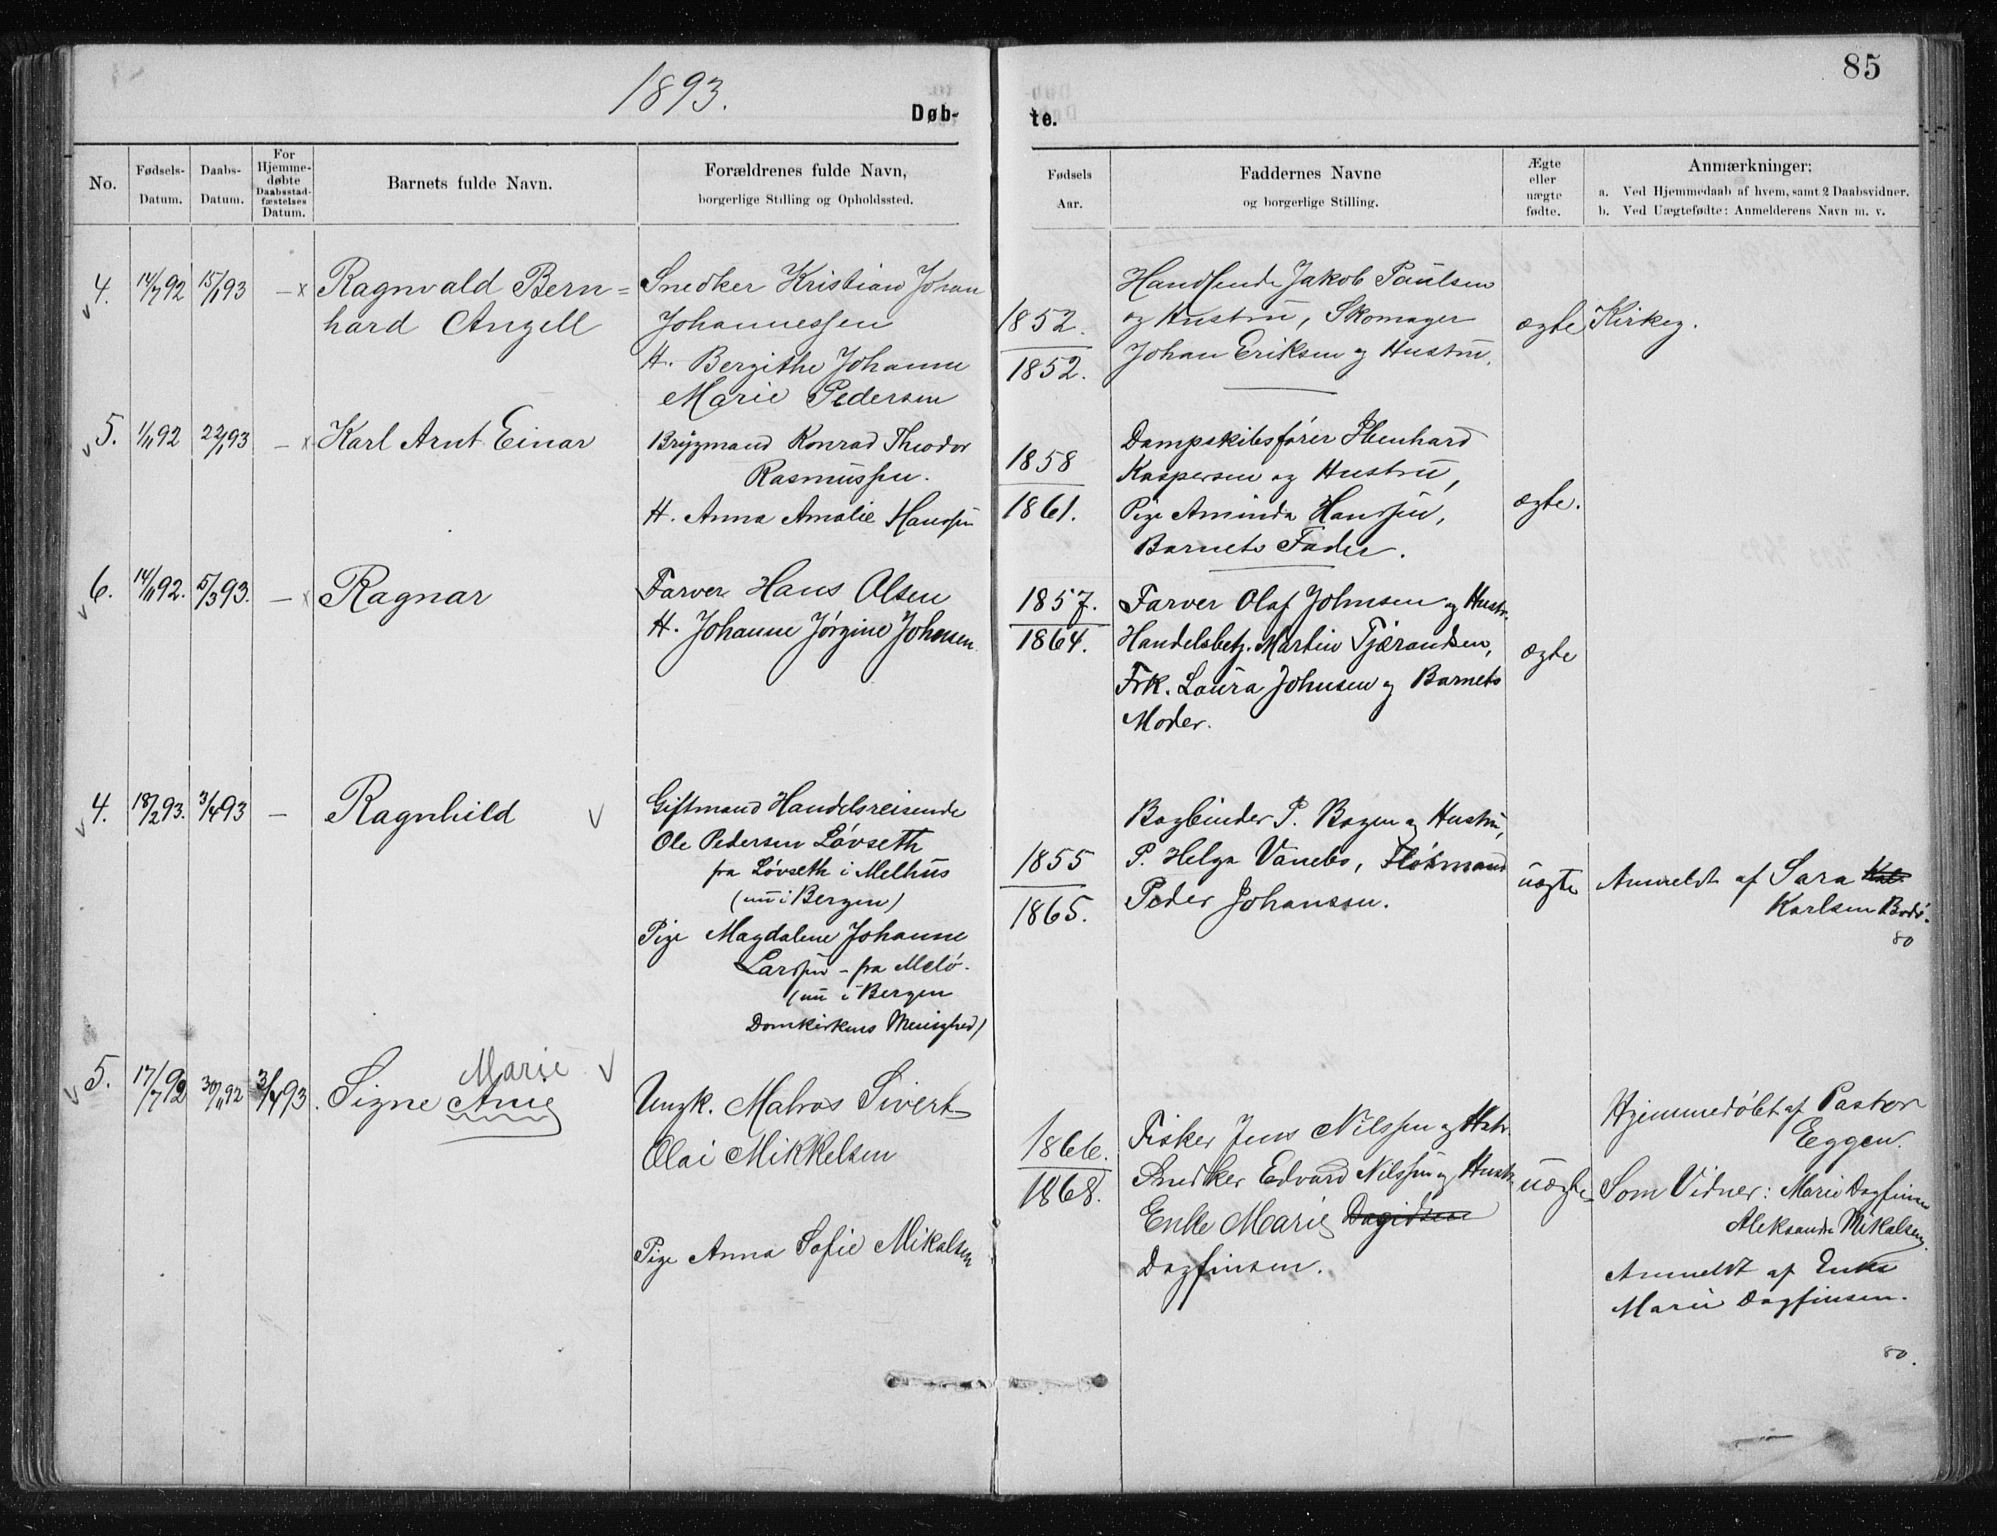 85
1893.
Døb-
te.
No.
Fødsels-
Datum.
Daabs-
Datum.
For
Hjemme-
døbte
Daabsstad-
fæstelses
Datum.
Barnets fulde Navn.
Forældrenes fulde Navn,
borgerlige Stilling og Opholdssted.
Fødsels
Aar.
Faddernes Navne
og borgerlige Stilling.
Ægte
eller
uægte
fødte.
Anmærkninger:
a. Ved Hjemmedaab af hvem, samt 2 Daabsvidner.
b. Ved Uægtefødte: Anmelderens Navn m. v.
4. 14/7 92 15/1 93 — x
Ragnvald Bern=
hard Angell
Snedker Kristian Johan
Johannessen
H. Bergithe Johanne
Marie Pedersen
1852.
1852.
Handlende Jakob Paulsen
og Hustru, Skomager
Johan Eriksen og Hustru.
ægte
Kirkeg.
5. 1/11 92 22/1 93 — x
Karl Arnt Einar
Brygmand Konrad Theodor
Rasmussen.
H. Anna Amalie Hanssen
1858
1861.
Dampskibsfører
Kaspersen og Hustru,
Pige Aminda Hanssen,
Barnets Fader.
ægte.
6. 14/11 92. 5/3 93. — x
Ragnar
Farver Hans Olsen
H. Johanne Jørgine Johnsen
1857.
1864.
Farver Olaf Johnsen og Hustr.
Handelsbetj. Martin Tjærandsen,
Frk. Laura Johnsen og Barnets
Moder.
ægte
4. 18/2 93. 3/4 93 —
Ragnhild
Giftmand Handelsreisende
Ole Pedersen Løvseth
fra Løvseth i Melhus
(nu i Bergen)
Pige Magdalene Johanne
Larssen - fra Melø.
(nu i Bergen
Domkirkens Menighed)
1855
1865.
Bogbinder P. Bogen og Hustru,
P. Helga Vanebo, Fløtmand
Peder Johanssen.
uægte
Anmeldt af Sara
Karlsen Bodø.
80
5. 17/7 92 30/11 92 3/4 93.
Marie
Signe Ane
Ungk. Malvos Sivert
Olai Mikkelsen
Pige Anna Sofie Mikalsen
1866.
1868.
Fisker Jens Nilssen og Hstr.
Snedker Edvard Nilssen og Hustr.
Enke Marie Dagidsen
Dagfinsen.
uægte
Hjemmedøbt af Pastor
Eggen.
Som Vidner: Marie Dagfinsen
Aleksandra Mikalsen.
Anmeldt af Enke
Marie Dagfinsen.
80.